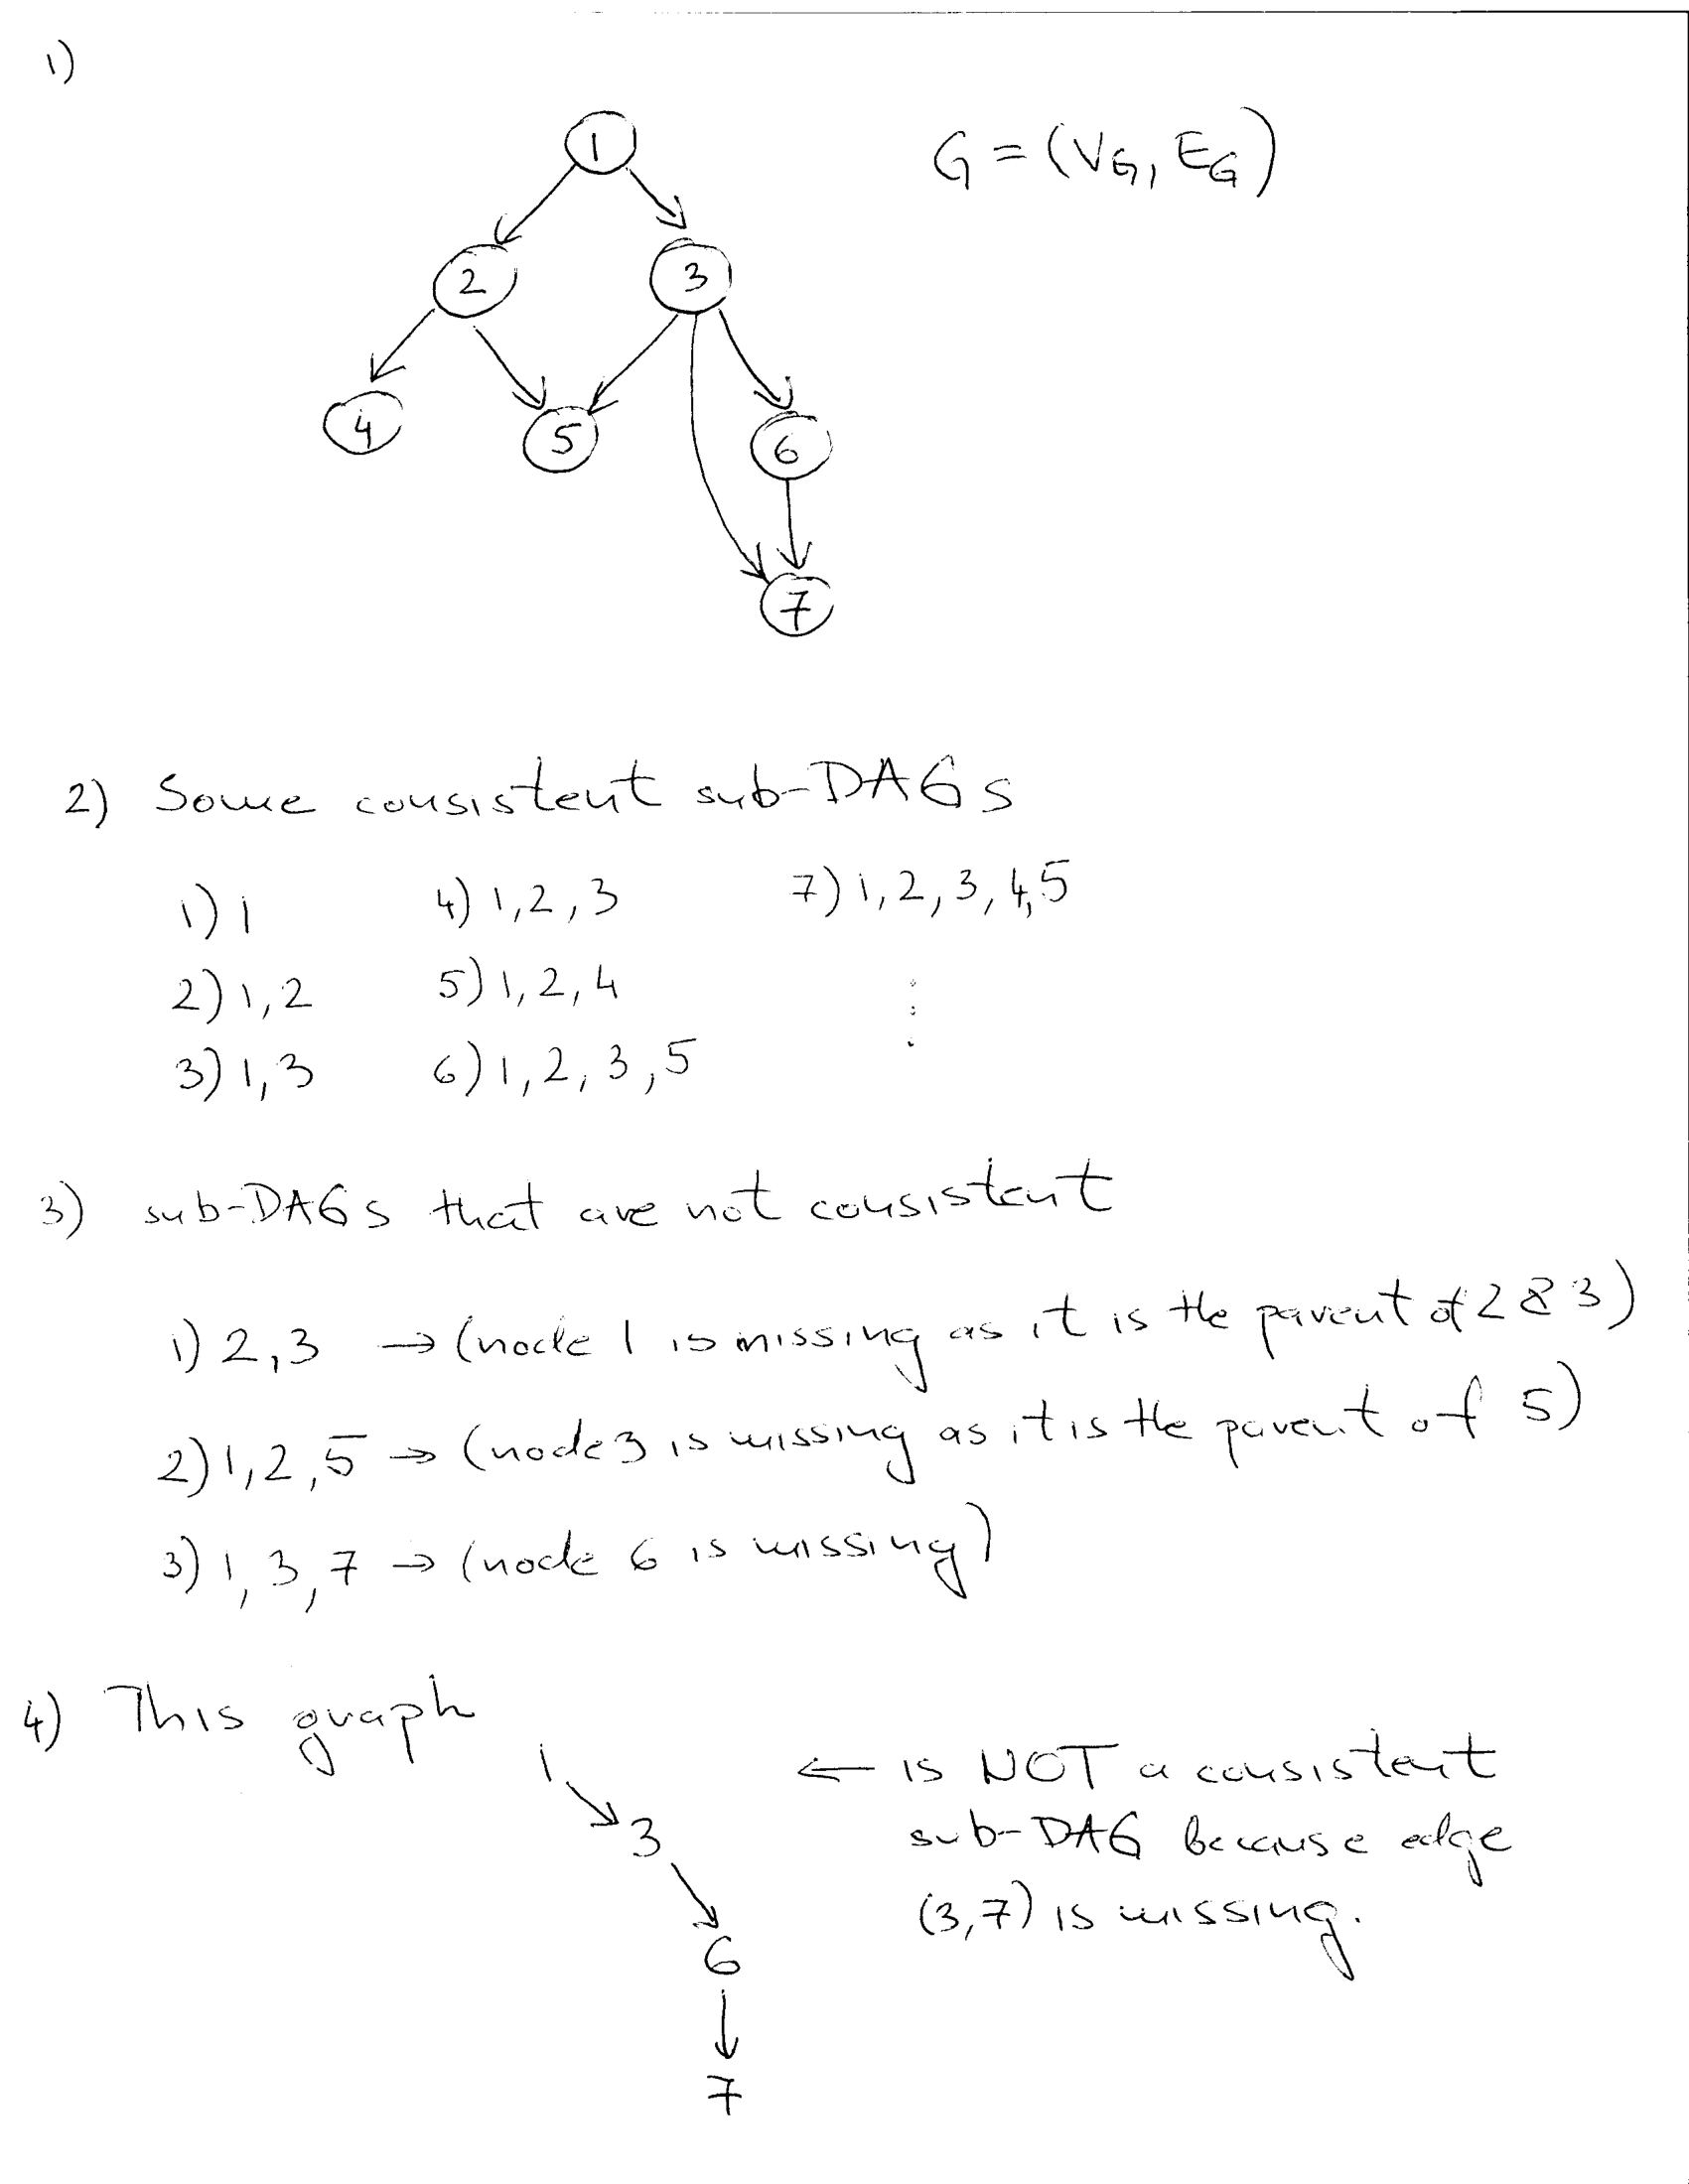 1)
1
G = (VG, EG)
2 3
4 5 6
7
2) Some consistent sub-DAGs
1) 1 4) 1, 2, 3 7) 1, 2, 3, 4, 5
2) 1, 2 5) 1, 2, 4
3) 1, 3 6) 1, 2, 3, 5
3) sub-DAGs that are not consistent
1) 2, 3 → (node 1 is missing as it is the parent of 2 & 3)
2) 1, 2, 5 → (node 3 is missing as it is the parent of 5)
3) 1, 3, 7 → (node 6 is missing)
4) This graph
1 ← is NOT a consistent
3 sub-DAG because edge
(3,7) is missing.
6
7